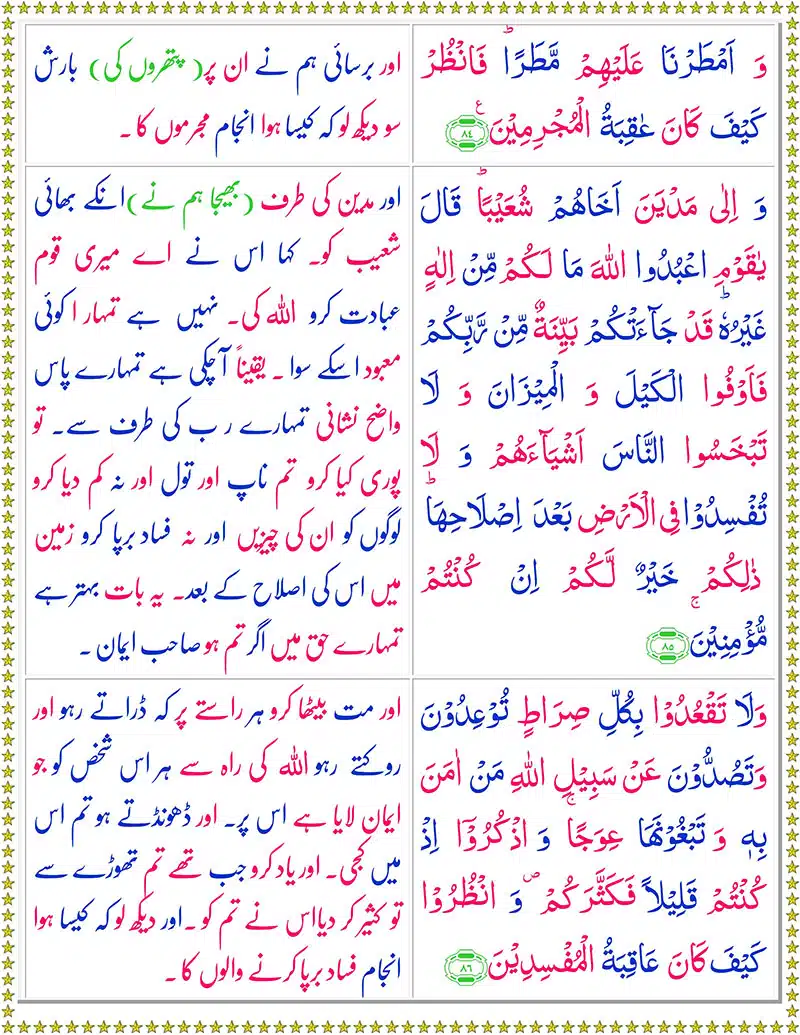 وَ اَمْطَرْنَا عَلَيْهِمْ مَّطَرًاؕ فَانْظُرْ
كَيْفَ كَانَ عٰقِبَةُ الْمُجْرِمِيْنَ۠ ﴿۸۴﴾
اور برسائی ہم نے ان پر( پتھروں کی) بارش
سو دیکھ لو کہ کیسا ہوا انجام مجرموں کا ۔
وَ اِلٰى مَدْيَنَ اَخَاهُمْ شُعَيْبًاؕ قَالَ
يٰقَوْمِ اعْبُدُوا اللّٰهَ مَا لَـكُمْ مِّنْ اِلٰهٍ
غَيْرُهٗؕ قَدْ جَآءَتْكُمْ بَيِّنَةٌ مِّنْ رَّبِّكُمْ
فَاَوْفُوا الْكَيْلَ وَ الْمِيْزَانَ وَ لَا
تَبْخَسُوا النَّاسَ اَشْيَآءَهُمْ وَ لَا
تُفْسِدُوْا فِى الْاَرْضِ بَعْدَ اِصْلَاحِهَاؕ
ذٰلِكُمْ خَيْرٌ لَّـكُمْ اِنْ كُنْتُمْ
مُّؤْمِنِيْنَۚ ﴿۸۵﴾
اور مدین کی طرف (بھیجا ہم نے)انکے بھائی
شعیب کو۔ کہا اس نے اے میری قوم
عبادت کرو اللہ کی۔ نہیں ہے تمہار ا کوئی
معبود اسکے سوا ۔ یقیناً آ چکی ہے تمہارے پاس
واضح نشانی تمہارے ر ب کی طرف سے۔ تو
پوری کیا کرو تم ناپ اور تول اور نہ کم دیا کرو
لوگوں کو ان کی چیزیں اور نہ فساد برپا کرو زمین
میں اس کی اصلاح کے بعد۔ یہ بات بہتر ہے
تمہارے حق میں اگر تم ہو صاحب ایمان ۔
وَلَا تَقْعُدُوْا بِكُلِّ صِرَاطٍ تُوْعِدُوْنَ
وَتَصُدُّوْنَ عَنْ سَبِيْلِ اللّٰهِ مَنْ اٰمَنَ
بِهٖ وَ تَبْغُوْنَهَا عِوَجًاۚ وَ اذْكُرُوْۤا اِذْ
كُنْتُمْ قَلِيْلاً فَكَثَّرَكُمْ ۪ وَ انْظُرُوْا
كَيْفَ كَانَ عَاقِبَةُ الْمُفْسِدِيْنَ ﴿۸۶﴾
اور مت بیٹھا کرو ہر راستے پر کہ ڈراتے رہو اور
روکتے رہو اللہ کی راہ سے ہر اس شخص کو جو
ایمان لایا ہے اس پر۔ اور ڈھونڈتے ہو تم اس
میں کجی۔ اور یاد کرو جب تھے تم تھوڑے سے
تو کثیر کر دیااس نے تم کو ۔اور دیکھ لو کہ کیسا ہوا
انجام فساد برپا کرنے والوں کا ۔